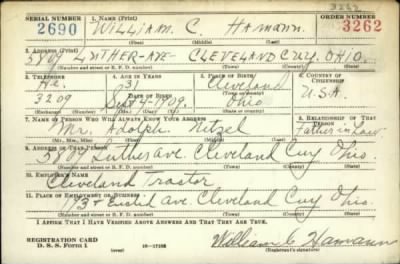 3262
SERIAL NUMBER 1. NAME (Print) ORDER NUMBER
2690 WILLIAM. C. HAMANN. 3262
(First) (Middle) (Last)
2. ADDRESS (Print)
5809 LUTHER-AVE CLEVELAND CUY. OHIO.
(Number and street or R. F. D. number) (Town) (County) (State)
3. TELEPHONE 4. AGE IN YEARS 5. PLACE OF BIRTH 6. COUNTRY OF CITIZENSHIP
He. 31 Cleveland
DATE OF BIRTH (Town or county)
3209 Sept 4-1909. Ohio U.S.A.
(Exchange) (Number) (Mo.) (Day) (Yr.) (State or country)
7. NAME OF PERSON WHO WILL ALWAYS KNOW YOUR ADDRESS 8. RELATIONSHIP OF THAT PERSON
Mr. Adolph Father in Law
(Mr., Mrs., Miss) (First) (Middle) (Last)
9. ADDRESS OF THAT PERSON
5809 Luther ave. Cleveland Cuy Ohio.
(Number and street or R. F. D. number) (Town) (County) (State)
10. EMPLOYER'S NAME
Cleveland Tractor
11. PLACE OF EMPLOYMENT OR BUSINESS
Euclid ave Cleveland Cuy Ohio.
(Number and street or R. F. D. number) (Town) (County) (State)
I AFFIRM THAT I HAVE VERIFIED ABOVE ANSWERS AND THAT THEY ARE TRUE.
REGISTRATION CARD
D. S. S. Form 1 16-17105 William C Hamann
(Registrant's signature)